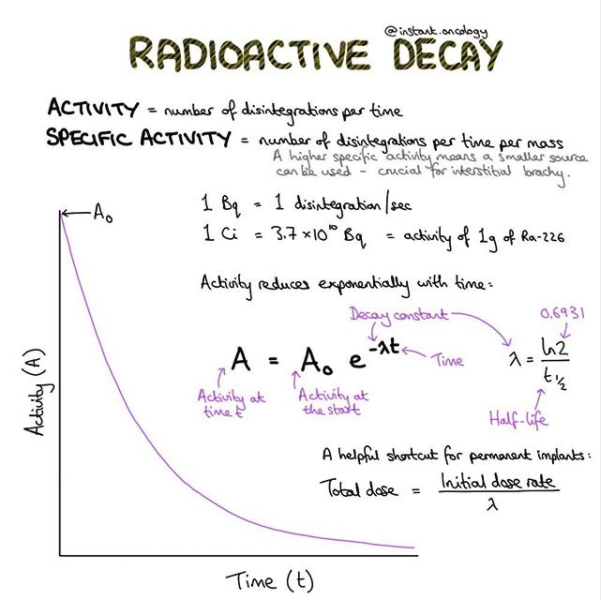 @instant.oncology
RADIOACTIVE DECAY
ACTIVITY = number of disintegrations per time
SPECIFIC ACTIVITY = number of disintegrations per time per mass
A higher specific activity means a smaller source
can be used - crucial for interstitial brachy.
1 Bq = 1 disintegration/sec
1 Ci = 3.7 ×10¹⁰ Bq = activity of 1g of Ra-226
Activity reduces exponentially with time:
A₀
Decay constant
0.6931
A = A₀ e^-λt
Time
λ = ln2 / t½
Activity at
time t
Activity at
the start
Half-life
A helpful shortcut for permanent implants:
Total dose = Initial dose rate / λ
Activity (A)
Time (t)